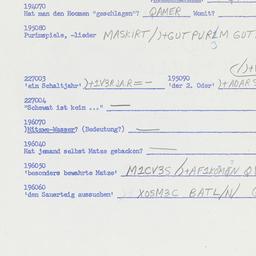 194070
Hat man den Hooman "geschlagen"? QAMER Womit?
195080
Purimspiele, -lieder MASKIRT/)+GUT PURIM GUT
227003 195090
'ein Schaltjahr' 'der 2. Oder' )+ADAR
227004
"Schewat ist kein ..." —
196070
)Nitzwe-Wasser? (Bedeutung?) —
196040
Hat jemand selbst Matze gebacken? —
196050
'besonders bewahrte Matze' M1CV3S
196060
'den Sauerteig aussuchen' XOSM3C BATL/N/